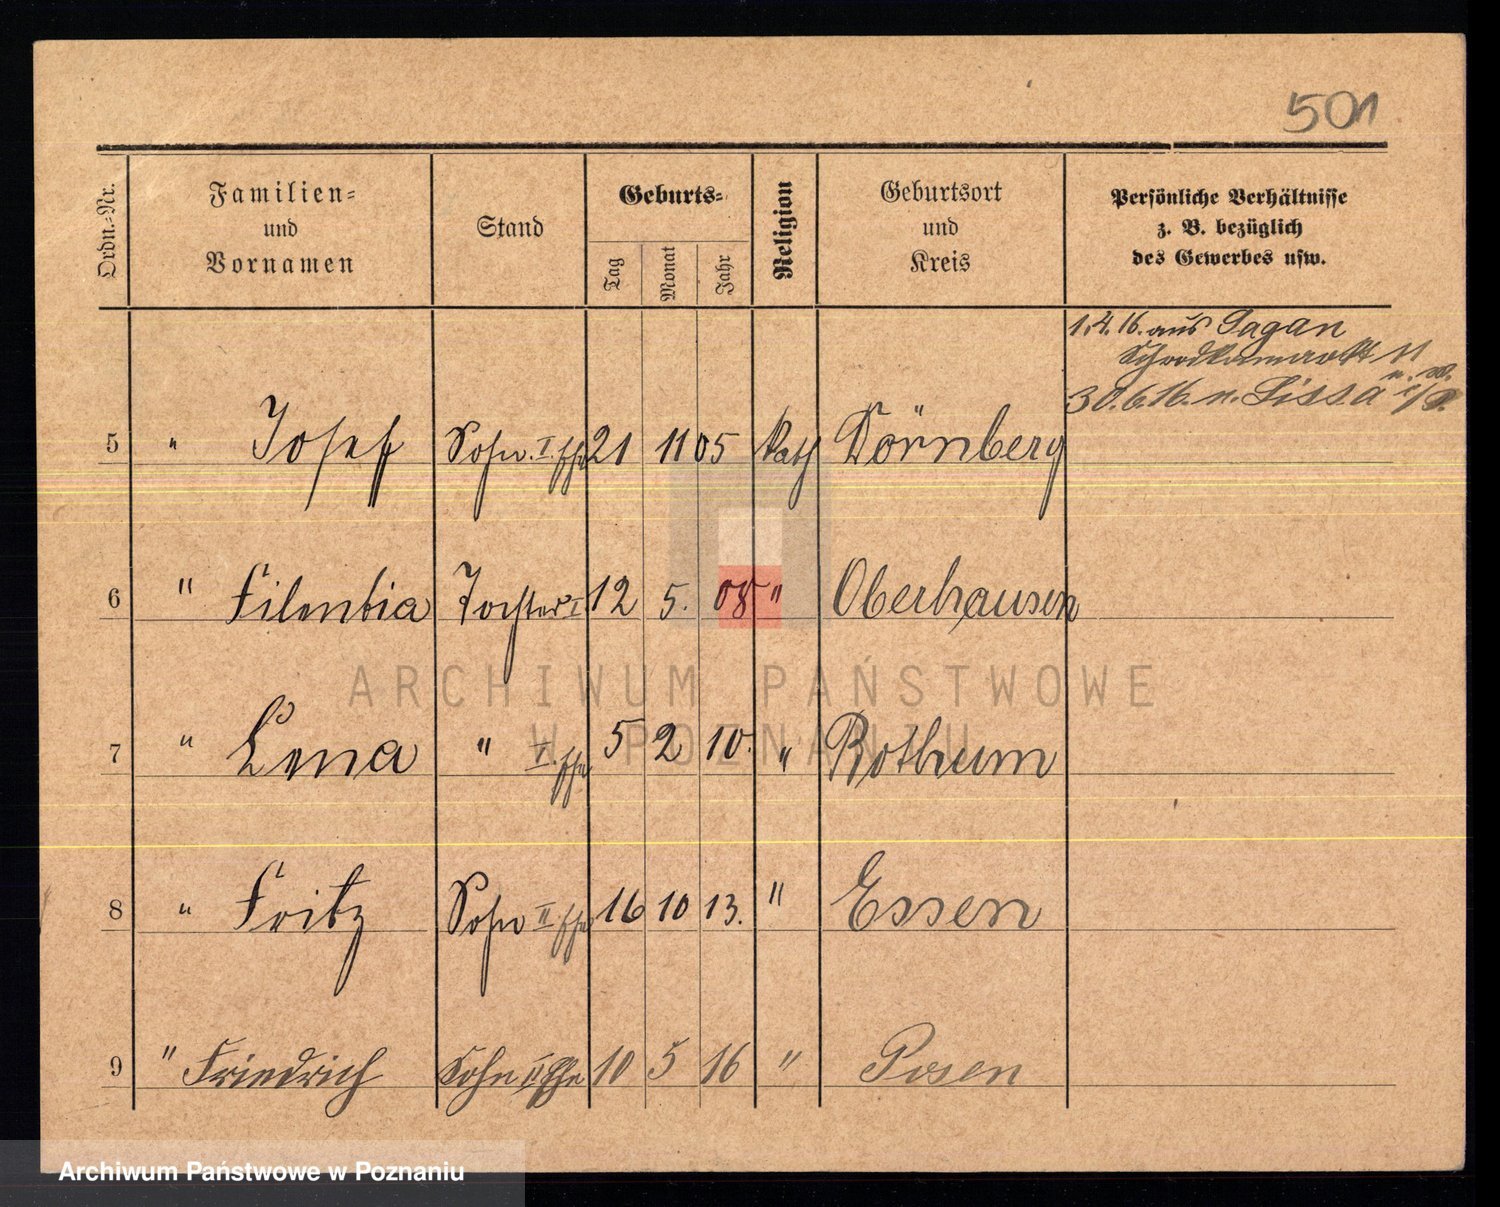 501
Ordn.-Nr.
Familien-
und
Vornamen
Stand
Geburts-
Tag
Monat
Jahr
Religion
Geburtsort
und
Kreis
Persönliche Verhältnisse
z. B. bezüglich
des Gewerbes usw.
1.4.16. aus Sagan
11
30.6.16. n. Lissa i/P.
5 " Josef Sohn I. Ehe 21 11 05 Kath Dörnberg
6 " Filentia Tochter I 12 5. 08 " Oberhausen
7 " Lena " I. Ehe 5 2 10. " Rothum
8 " Fritz Sohn II Ehe 16 10 13. " Essen
9 " Friedrich Sohn II Ehe 10 5 16 " Posen
ARCHIWUM PAŃSTWOWE
W POZNANIU
Archiwum Państwowe w Poznaniu